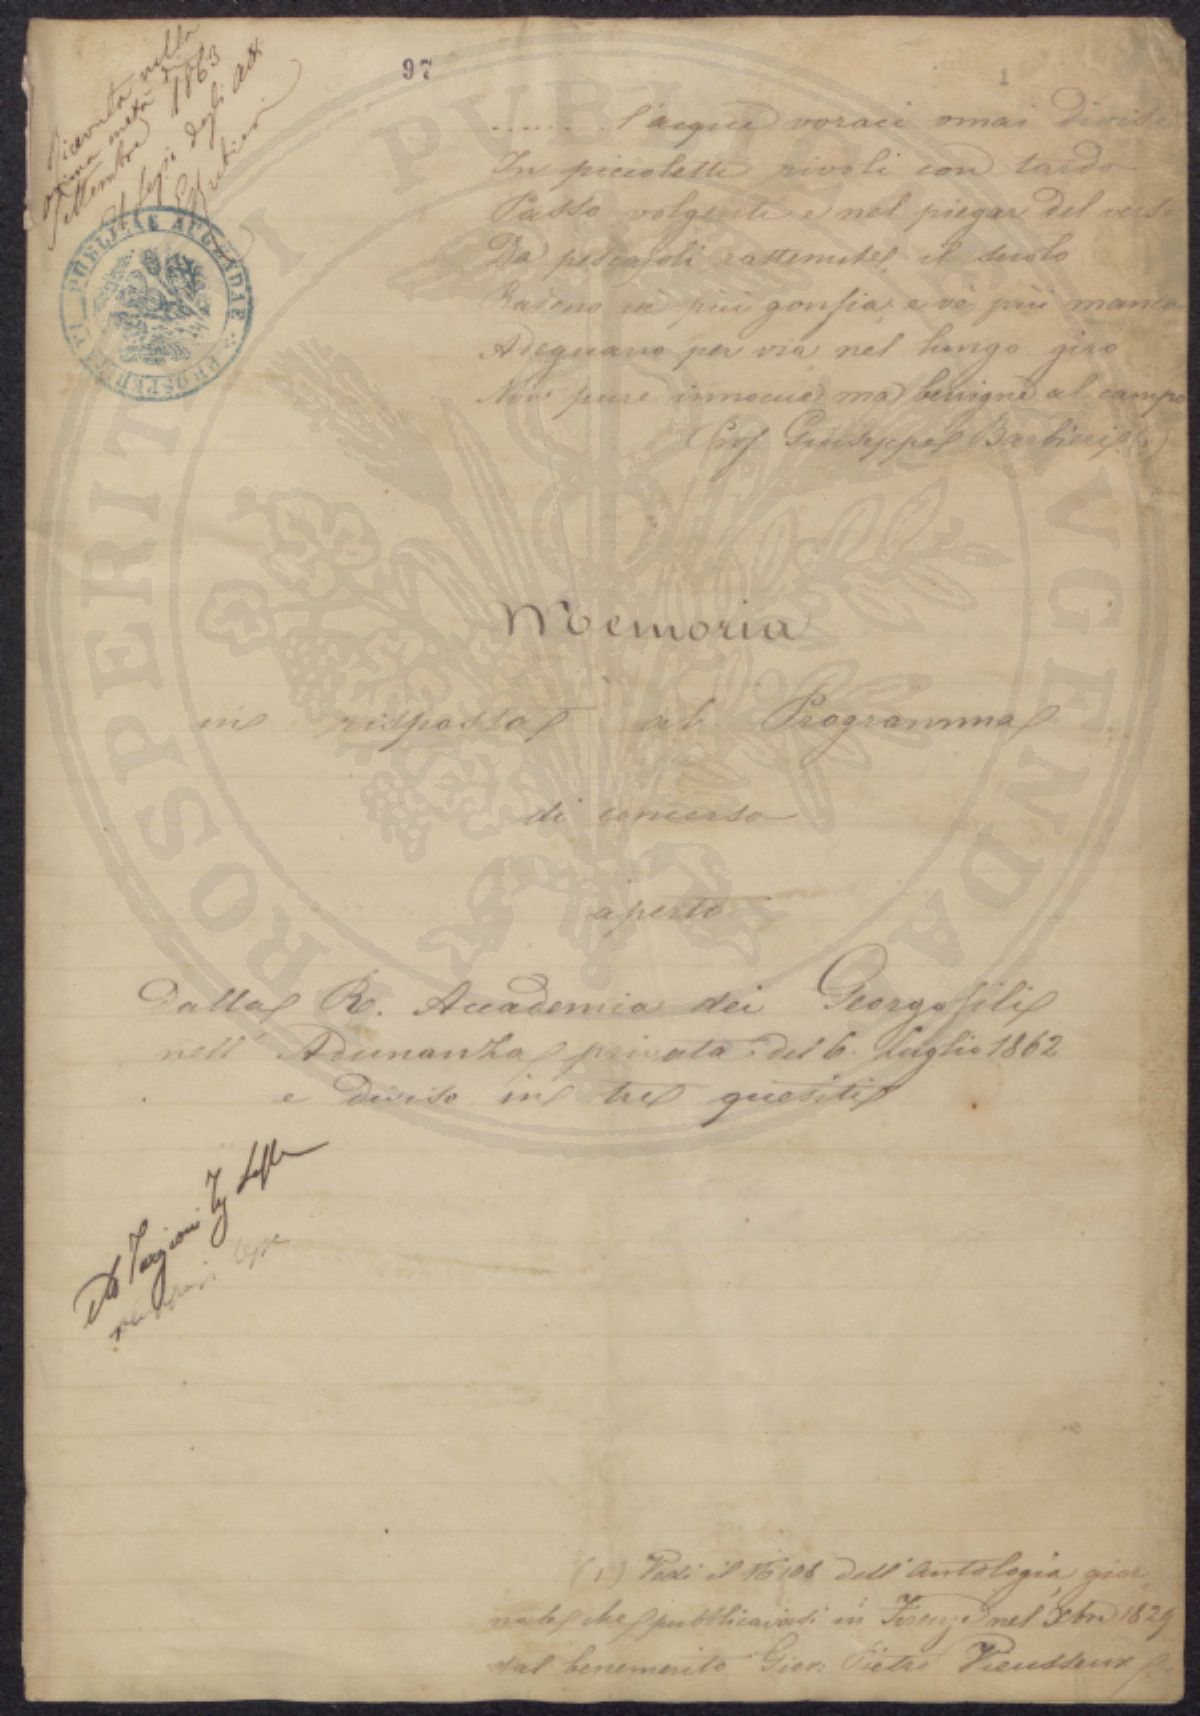 Ricevuta nella
prima metà di
Settembre 1863
degli Atti
97
1
........ l'acque voraci omai divise
In piccoletti rivoli con tardo
Passo volgenti e nel piegar del verso
Da pescajoli rattenute, il suolo
Radono u' più gonfia, e v'è più manco
Adeguano per via nel lungo giro
Non pure innocue ma benigne al campo
Prof. Giuseppe Barbieri (1)
PROSPERITATI PUBLICAE AUGENDAE
Memoria
in risposta al Programma
di concorso
aperto
Dalla R. Accademia dei Georgofili
nell' Adunanza privata del 6. Luglio 1862
e diviso in tre quesiti
Targioni
(1) Vedi il N° 108 dell' Antologia gior-
nale che pubblicavasi in Firenze nel Xbre 1829
dal benemerito Giov: Pietro Vieusseux
PROSPERITATI PUBLICAE AVGENDAE